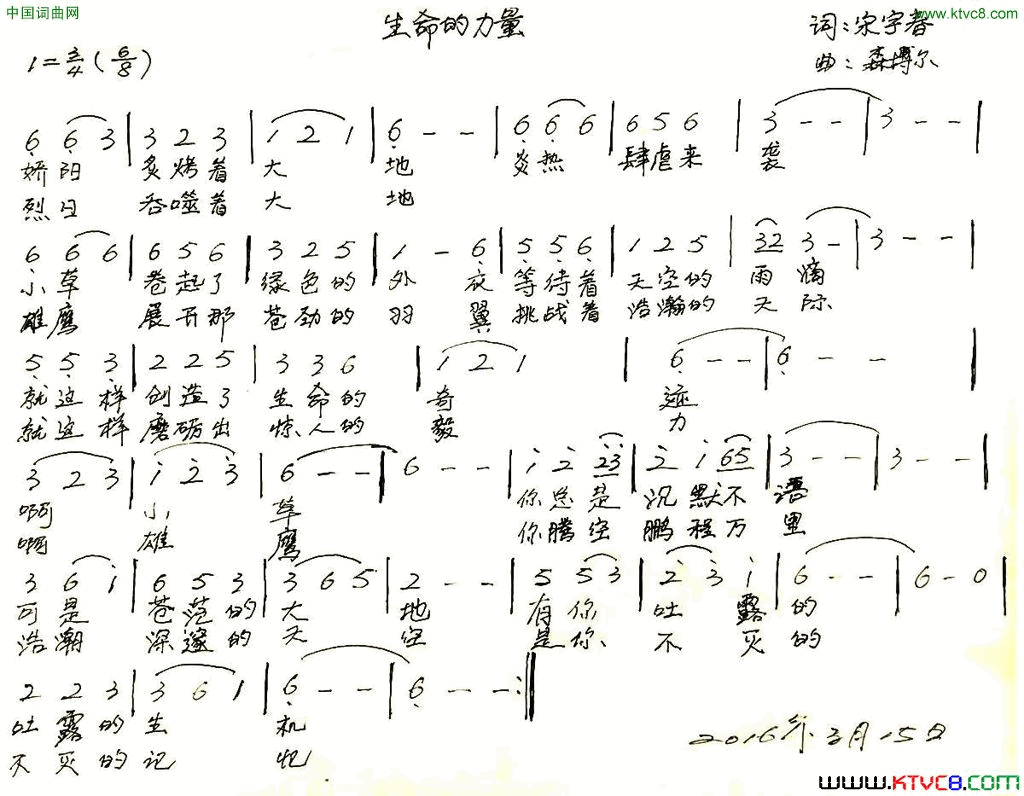 中国词曲网
www.ktvc8.com
生命的力量
词:宋宇春
曲:森博尔
1=3/4(6/8)
6 6 3 | 3 2 3 | 1 2 1 | 6 - - | 6 6 6 | 6 5 6 | 3 - - | 3 - - |
娇阳 炙烤着 大 地 炎热 肆虐来 袭
烈日 吞噬着 大 地
6 6 6 | 6 5 6 | 3 2 5 | 1 - 6 | 5 5 6 | 1 2 5 | 32 3 - | 3 - - |
小草 卷起了 绿色的 外 衣 等待着 天空的 雨 滴
雄鹰 展开那 苍劲的 羽 翼 挑战着 浩瀚的 天 际
5 5 3 | 2 2 5 | 3 3 6 | 1 2 1 | 6 - - | 6 - - |
就这样 创造了 生命的 奇 迹
就这样 磨砺出 惊人的 毅 力
3 2 3 | i 2 3 | 6 - - | 6 - - | i 2 23 | 2 i 65 | 3 - - | 3 - - |
啊 小 草 你总是 沉默不 语
啊 雄 鹰 你腾空 鹏程万 里
3 6 i | 6 5 3 | 3 6 5 | 2 - - | 5 5 3 | 2 3 i | 6 - - | 6 - 0 |
可是 苍茫的 大 地 有你 吐 露 的
浩瀚 深邃的 天 空 是你 不 灭 的
2 2 3 | 3 6 1 | 6 - - | 6 - - :||
吐露的 生 机
不灭的 记 忆
2016年3月15日
www.KTVC8.com